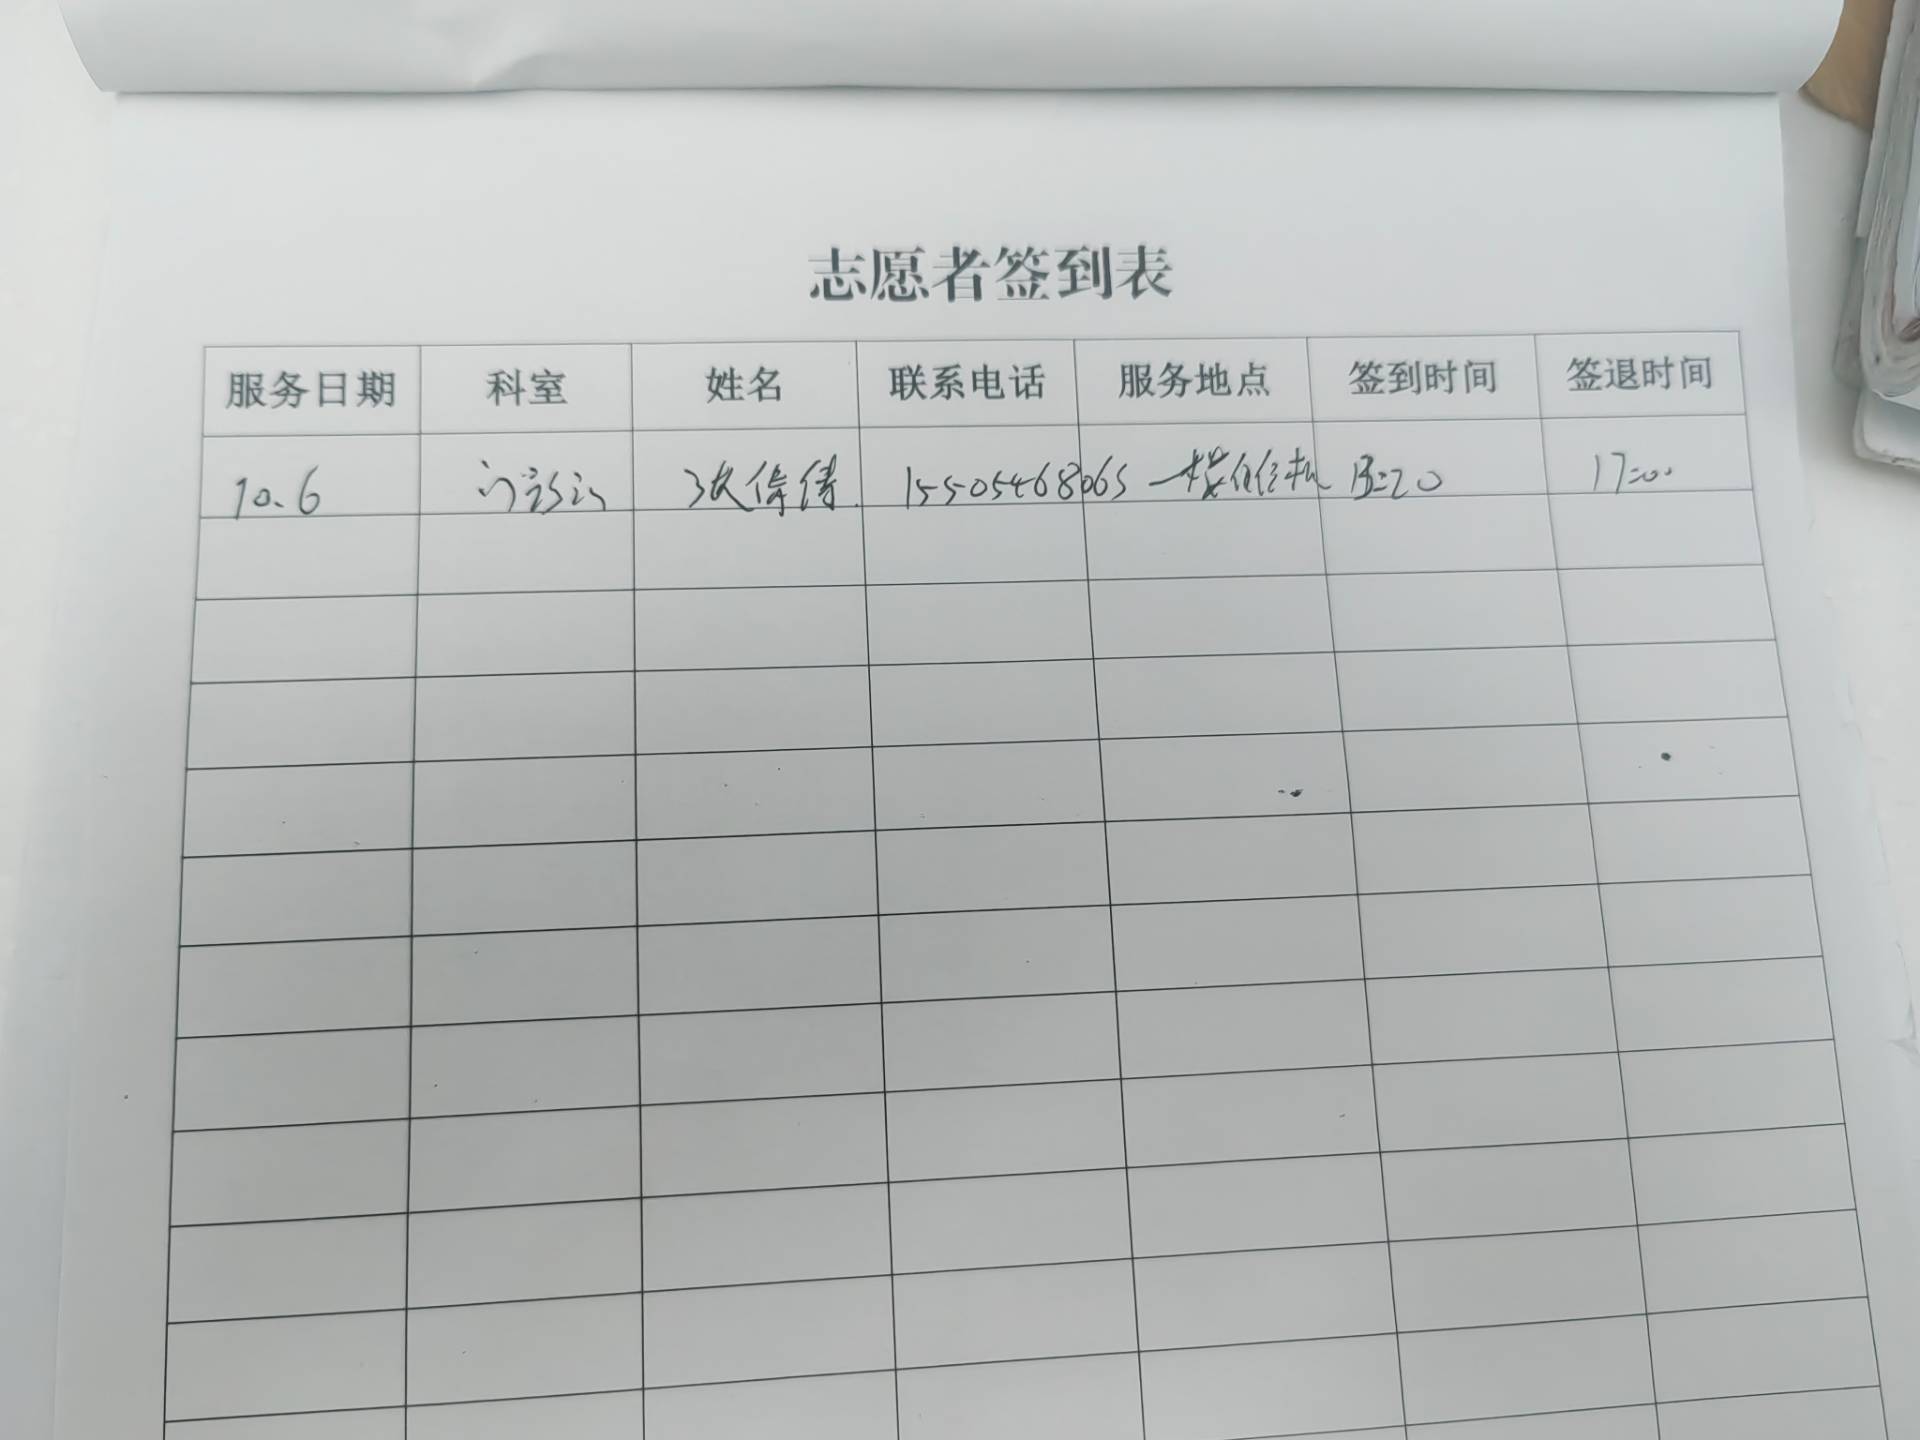 志愿者签到表
服务日期 科室 姓名 联系电话 服务地点 签到时间 签退时间
10.6 门诊 15505468065 一楼自信机 13:20 17:00